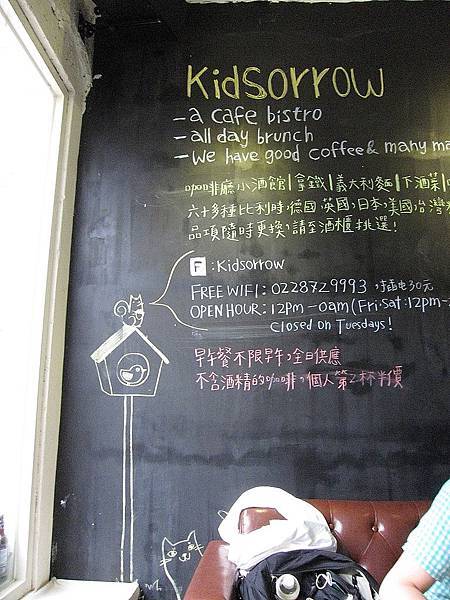 Kidsorrow
- a cafe bistro
- all day brunch
- We have good coffee & many
咖啡廳小酒館|拿鐵|義大利麵|下酒菜|
六十多種比利時,德國,英國,日本,美國,台灣
品項隨時更換,請至酒櫃挑選!
F:Kidsorrow
FREE WIFI: 0228729993,插电30元
OPEN HOUR: 12pm-0am(Fri.Sat:12pm-
Closed on Tuesdays!
早午餐不限早午,全日供應
不含酒精的咖啡,個人第2杯半價